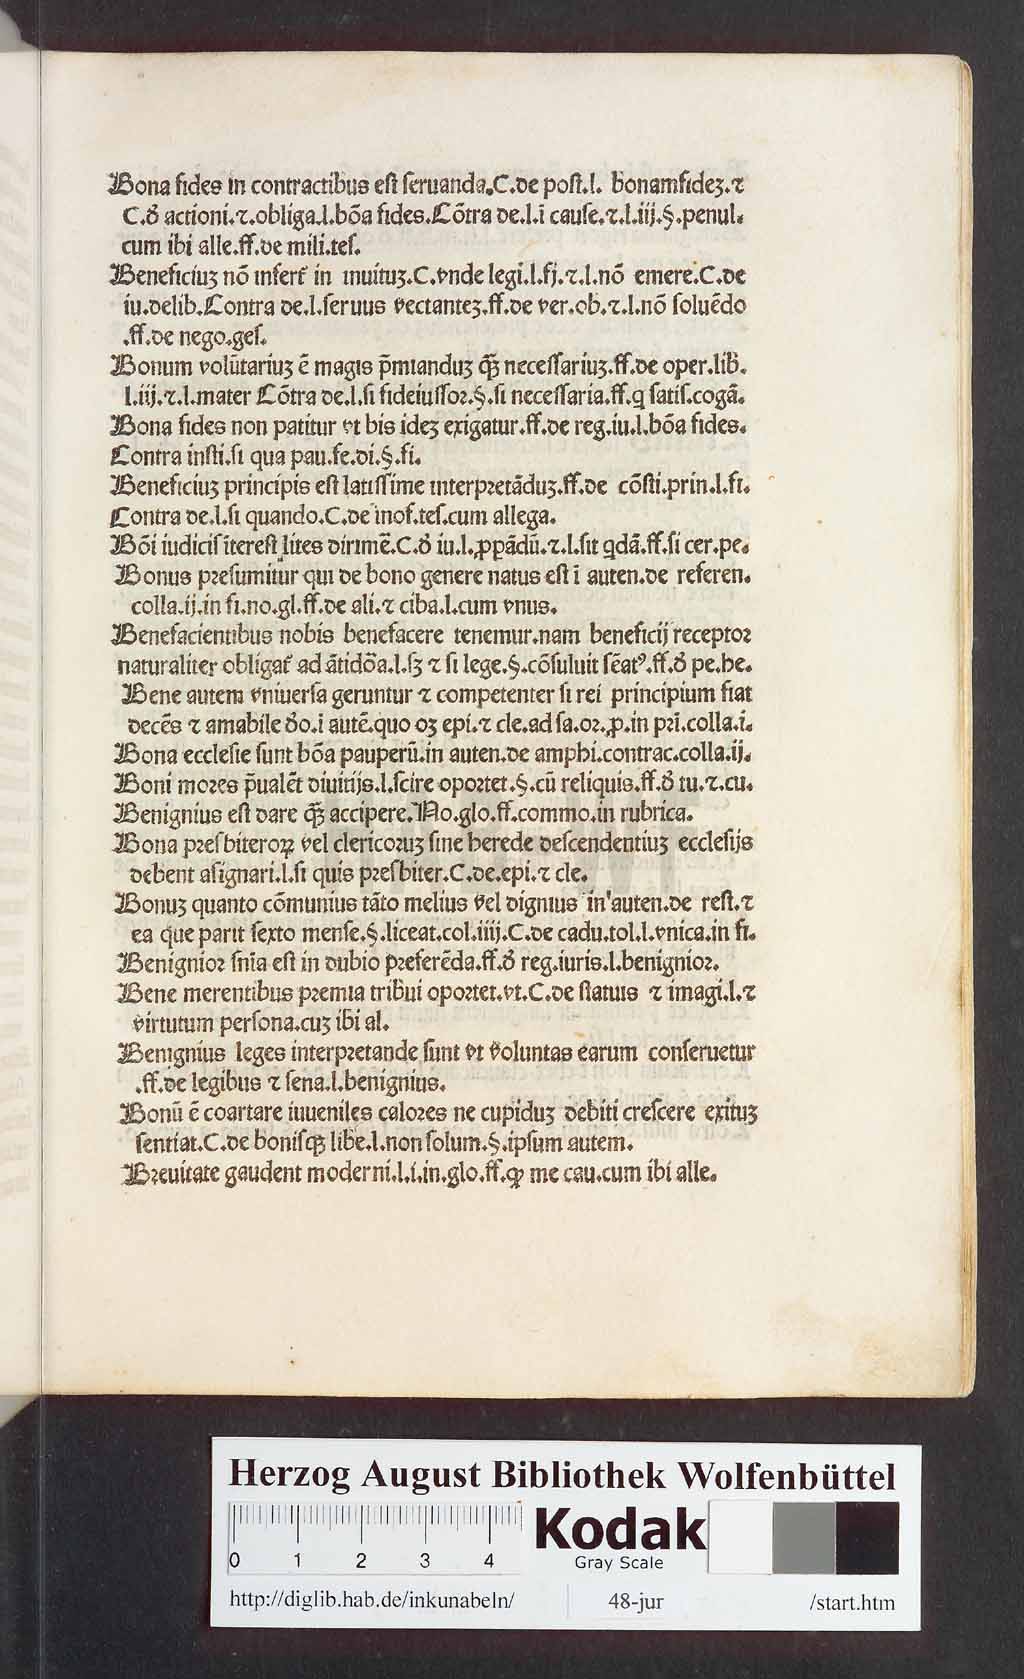 Bona fides in contractibus est seruanda.C.de post.l. bonamfidez.⁊
C.ꝺ̕ actioni.⁊.obliga.l.bōa fides.Cōtra de.l.ī cause.⁊.l.iij.§.penul.
cum ibi alle.ff.de mili.tes.
Beneficiuz nō infert̕ in inuituz.C.vnde legi.l.fj.⁊.l.nō emere.C.de
iu.delib.Contra de.l.seruus vectantez.ff.de ver.ob.⁊.l.nō soluēdo
.ff.de nego.ges.
Bonum volūtariuz ē magis p̄mianduz qȝ̄ necessariuz.ff.de oper.lib̄.
l.iij.⁊.l.mater Cōtra de.l.si fideiussoꝛ.§.si necessaria.ff.q satis.cogā.
Bona fides non patitur vt bis idez exigatur.ff.de reg.iu.l.bōa fides.
Contra insti.si qua pau.fe.di.§.fi.
Beneficiuz principis est latissime interpꝛetāduz.ff.de cōsti.prin.l.fi.
Contra de.l.si quando.C.de inof.tes.cum allega.
Bōi iudicis īterest lites dirimē.C.ꝺ̕ iu.l.ꝓpādū.⁊.l.sit qdā.ff.si cer.pe.
Bonus pꝛesumitur qui de bono genere natus est ī auten.de referen.
colla.ij.in fi.no.gl.ff.de ali.⁊ ciba.l.cum vnus.
Benefacientibus nobis benefacere tenemur.nam beneficij receptoꝛ
naturaliter obligat̕ ad ātidōa.l.sȝ ⁊ si lege.§.cōsuluit sēatꝰ.ff.ꝺ̕ pe.he.
Bene autem vniuersa geruntur ⁊ competenter si rei principium fiat
decēs ⁊ amabile ꝺ̕o.i autē.quo oȝ epi.⁊ cle.ad sa.oꝛ.ꝓ.in pꝛī.colla.i.
Bona ecclesie sunt bōa pauperū.in auten.de amphi.contrac.colla.ij.
Boni moꝛes p̄ualēt diuitijs.l.scire opoꝛtet.§.cū reliquis.ff.ꝺ̕ tu.⁊.cu.
Benignius est dare qȝ̄ accipere.No.glo.ff.commo.in rubrica.
Bona pꝛesbiteroꝝ vel clericoꝛuz sine herede descendentiuz ecclesijs
debent asignari.l.si quis pꝛesbiter.C.de.epi.⁊ cle.
Bonuz quanto cōmunius tāto melius vel dignius in auten.de rest.⁊
ea que parit sexto mense.§.liceat.col.iiij.C.de cadu.tol.l.vnica.in fi.
Benignioꝛ sn̄ia est in dubio pꝛeferēda.ff.ꝺ̕ reg.iuris.l.benignioꝛ.
Bene merentibus pꝛemia tribui opoꝛtet.vt.C.de statuis ⁊ imagi.l.⁊
virtutum persona.cuz ibi al.
Benignius leges interpꝛetande sunt vt voluntas earum conseruetur
.ff.de legibus ⁊ sena.l.benignius.
Bonū ē coartare iuueniles caloꝛes ne cupiduz debiti crescere exituz
sentiat.C.de bonisqȝ libe.l.non solum.§.ipsum autem.
Bꝛeuitate gaudent moderni.l.i.in.glo.ff.ꝙ me cau.cum ibi alle.
Herzog August Bibliothek Wolfenbüttel
0 1 2 3 4
Kodak
Gray Scale
http://diglib.hab.de/inkunabeln/ 48-jur /start.htm